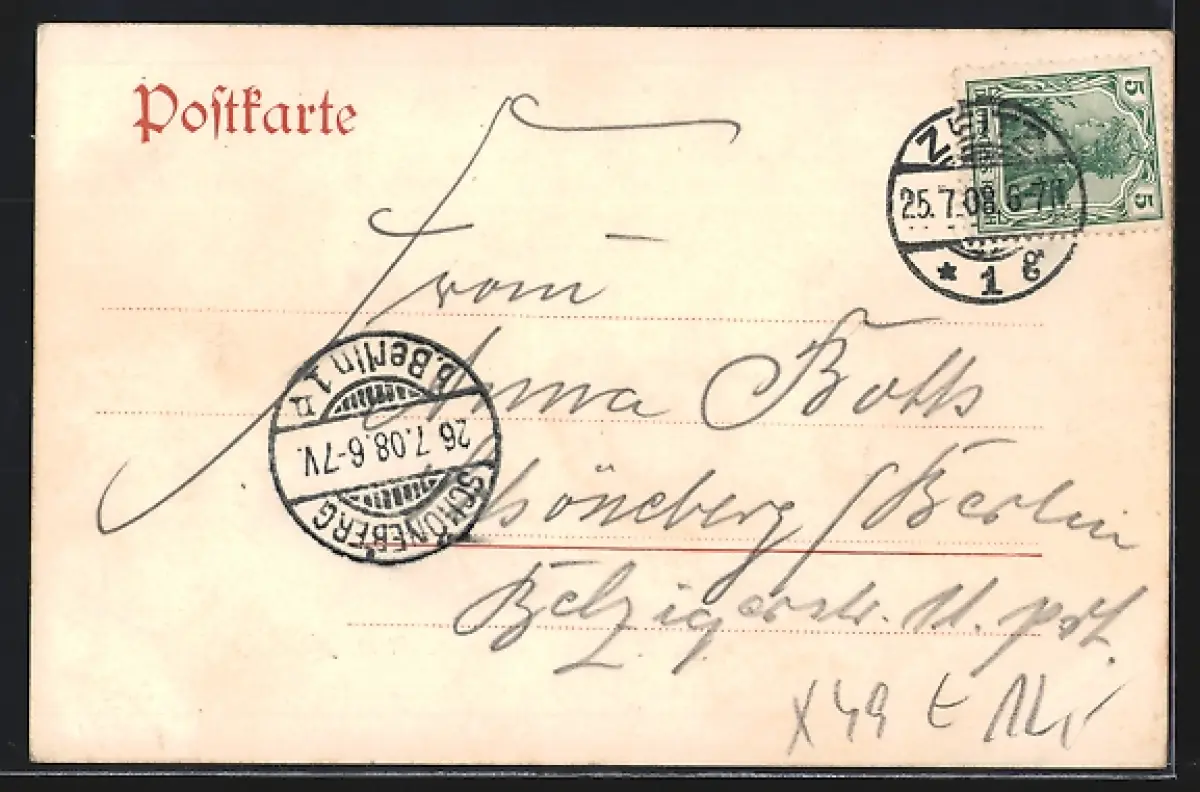 Postkarte
5 DEUTSCHES REICH 5
25.7.08. 6-7N.
* 1 g
Anna Botts
Schöneberg / Berlin
Belzigerstr. 11. ptr.
SCHÖNEBERG b. Berlin 1
26.7.08. 6-7V.
x 49 t